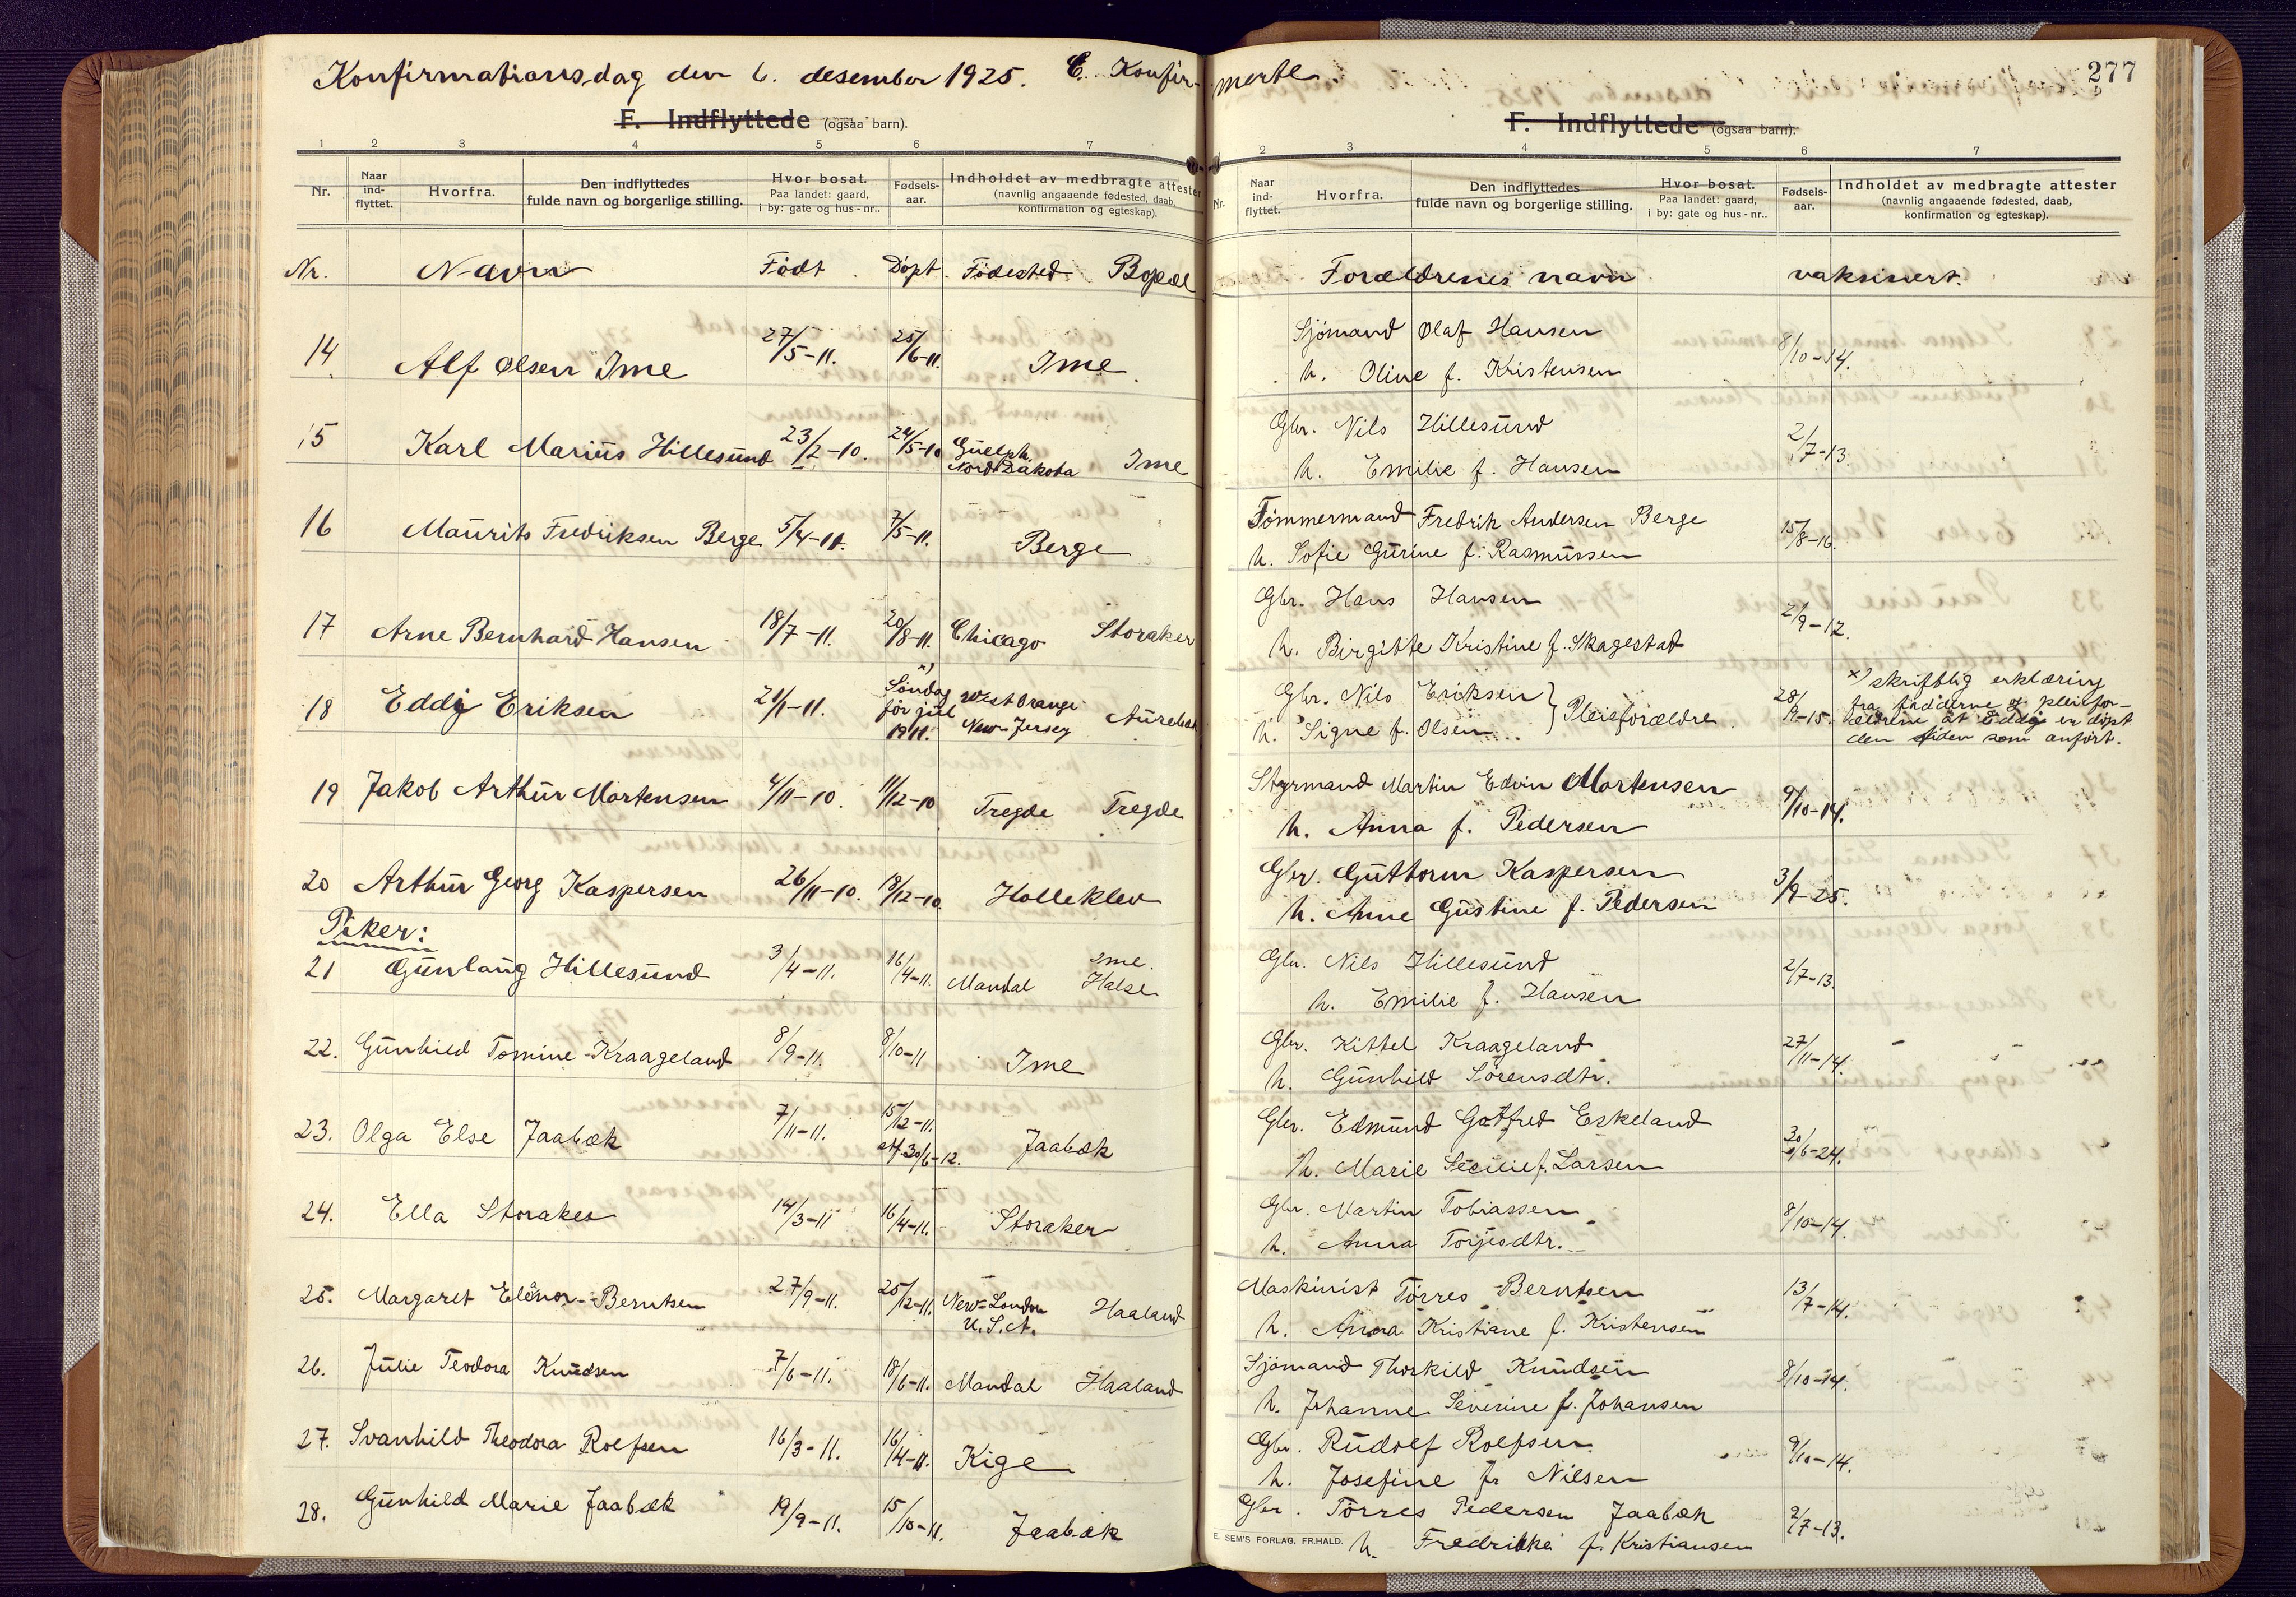 Konfirmationsdag den 6. desember 1925. C. Konfir-
F. Indflyttede (ogsaa barn).
1 2 3 4 5 6 7
Nr. Naar ind-flyttet. Hvorfra. Den indflyttedes fulde navn og borgerlige stilling. Hvor bosat. Paa landet: gaard, i by: gate og hus-nr.. Fødsels-aar. Indholdet av medbragte attester (navnlig angaaende fødested, daab, konfirmation og egteskap).
Nr. Navn Födt. Döpt. Födested Bopæl
14 Alf Olsen Ime 27/5-11. 25/6-11. Ime
15 Karl Marius Hillesund 23/2-10. 24/5-10 Guelph. Nord Dakota Ime
16 Maurits Fredriksen Berge 5/4-11. 7/5-11. Berge
17 Arne Bernhard Hansen 18/7-11. 20/8-11. Chicago Storaker
18 Eddy Eriksen 21/1-11. x) Söndag för jul 1911. West Orange New-Jersey
19 Jakob Arthur Martensen 4/11-10. 11/12-10 Tregde Tregde
20 Arthur Georg Kaspersen 26/11-10. 18/12-10. Holleklev
Piker:
21 Gunlaug Hillesund 3/4-11. 16/4-11. Mandal Ime. Halse
22. Gunhild Tomine Kraageland 8/9-11. 8/10-11 Ime
23. Olga Else Jaabæk 7/11-11. 15/12-11. stf. 30/6-12. Jaabæk
24. Ella Storaker 14/3-11 16/4-11. Storaker
25. Margaret Elenor Berntsen 27/9-11. 25/12-11. New-London U.S.A. Haaland
26. Julie Teodora Knudsen 7/6-11. 18/6-11. Mandal Haaland
27. Svanhild Theodora Rolfsen 16/3-11. 16/4-11. Kige
28. Gunhild Marie Jaabæk 19/9-11. 15/10-11. Jaabæk
merte
277
F. Indflyttede (ogsaa barn).
2 3 4 5 6 7
Nr. Naar ind-flyttet. Hvorfra. Den indflyttedes fulde navn og borgerlige stilling. Hvor bosat. Paa landet: gaard, i by: gate og hus-nr.. Fødsels-aar. Indholdet av medbragte attester (navnlig angaaende fødested, daab, konfirmation og egteskap).
Forældrenes navn vaksinert.
Sjömand Olaf Hansen 8/10-14.
h. Oline f. Kristensen
Gbr. Nils Hillesund 2/7-13.
h. Emilie f. Hansen
Tömmermand Fredrik Andersen Berge 15/8-16.
h. Sofie Gurine f. Rasmussen
Gbr. Hans Hansen 2/9-12.
h. Birgitte Kristine f. Skagestad
x) skriftlig erklæring
Gbr. Nils Eriksen } Pleieforældre 28/9-15. fra fadderne og pleiefor-
h. Signe f. Olsen ældrene at Eddy er döpt
den tiden som anfört.
Styrmand Martin Edvin Martensen 9/10-14.
h. Anna f. Pedersen
Gbr. Guttorm Kaspersen 3/9-25.
h. Anne Gustine f. Pedersen
Gbr. Nils Hillesund 2/7-13.
h. Emilie f. Hansen
Gbr. Kittel Kraageland 27/11-14.
h. Gunhild Sörensdtr.
Gbr. Edmund Gotfred Eskeland 30/6-24.
h. Marie Secilie f. Larsen
Gbr. Martin Tobiassen 8/10-14.
h. Anna Torjesdtr.
Maskinist Törres Berntsen 13/7-14.
h. Anna Kristiane f. Kristensen
Sjömand Thorkild Knudsen 8/10-14.
h. Johanne Severine f. Johansen
Gbr. Rudolf Rolfsen 9/10-14.
h. Josefine f. Nilsen
Gbr. Törres Pedersen Jaabæk 2/7-13.
E. SEM'S FORLAG, FR.HALD. h. Fredrikke f. Kristiansen